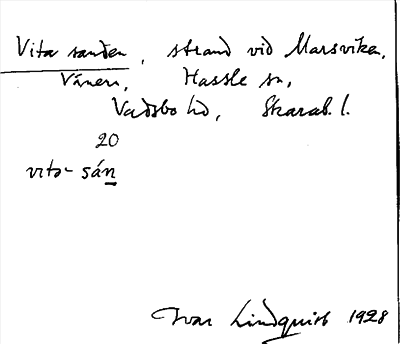 Vita sanden, strand vid Marsviken,
Vänern, Hassle sn,
Vadsbo hd, Skarab. l.
20
vita- sán
Ivar Lindquist 1928